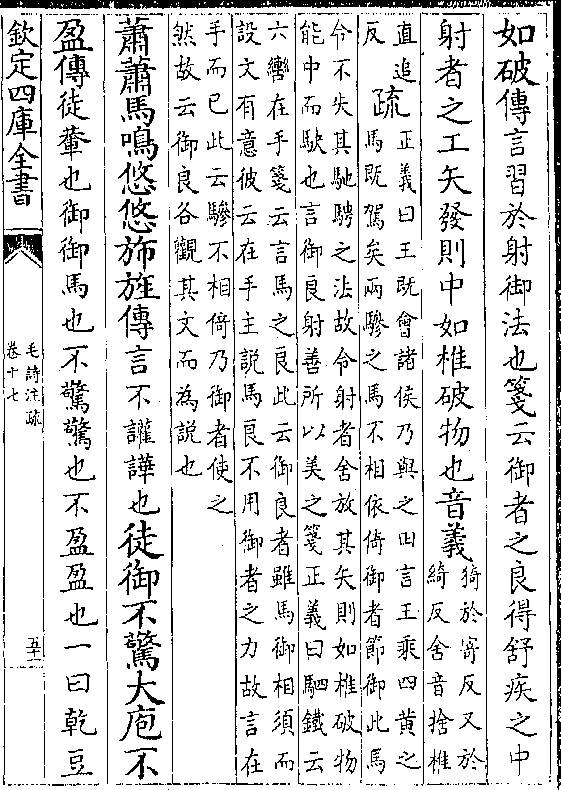 如破傳言習於射御法也箋云御者之良得舒疾之中
射者之工矢發則中如椎破物也音義
猗於寄反又於
綺反舍音捨椎
直追
反
疏
正義曰王既會諸侯乃與之田言王乘四黄之
馬既駕矣兩驂之馬不相依倚御者節御此馬
令不失其馳騁之法故令射者舍放其矢則如椎破物
能中而駃也言御良射善所以美之箋正義曰駟鐵云
六轡在手箋云言馬之良此云御良者雖馬御相須而
設文有意彼云在手主説馬良不用御者之力故言在
手而已此云驂不相倚乃御者使之
然故云御良各觀其文而為説也
蕭蕭馬鳴悠悠斾旌傳言不讙譁也徒御不驚大庖不
盈傳徒輦也御御馬也不驚驚也不盈盈也一曰乾豆
欽定四庫全書
毛詩注疏
卷十七
五十一